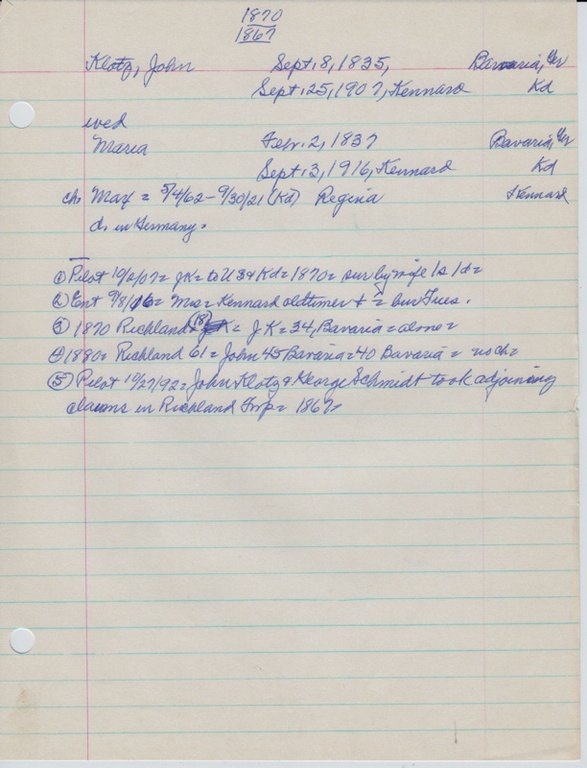 1870
1867
Klotz, John Sept. 8, 1835, Bavaria, Ger
Sept. 25, 1907, Kennard Kd
wed
Maria Febr. 2, 1837 Bavaria, Ger
Sept. 3, 1916, Kennard Kd
ch. Max = 5/4/62 - 9/30/21 (Kd) Regina Kennard
d. in Germany.
① Pilot 10/2/07 = JK = to U S & Kd = 1870 = sur by wife 1s 1d =
② Ent 9/8/16 = Mrs = Kennard oldtimer + = bur Tues.
③ 1870 Richland (18) = J K = 34, Bavaria = alone =
④ 1880 = Richland 61 = John 45 Bavaria = 40 Bavaria = no ch =
⑤ Pilot 10/27/92 = John Klotz & George Schmidt took adjoining
claims in Richland Twp = 1867 =